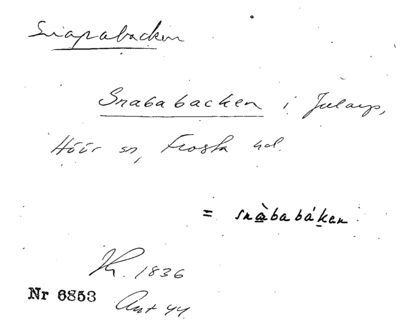 Snapabacken
Snababacken i Jularp,
Höör sn, Frosta hd.
= snàbabáken
Kr. 1836
Nr 6853 Ant 44